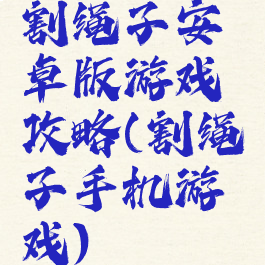 割绳子安
卓版游戏
攻略(割绳
子手机游
戏)